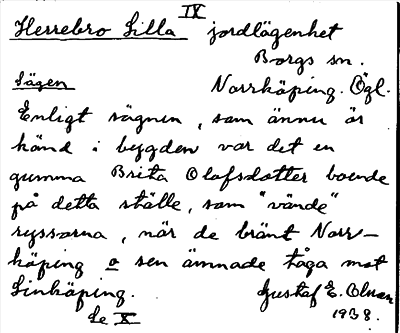 IX
Herrebro Lilla jordlägenhet
Borgs sn.
Sägen Norrköping. Ögl.
Enligt sägnen, som ännu är
känd i bygden var det en
gumma Brita Olofsdotter boende
på detta ställe, som "vände"
ryssarna, när de bränt Norr-
köping o sen ämnade tåga mot
Linköping. Gustaf E. Olsson
Se X 1938.